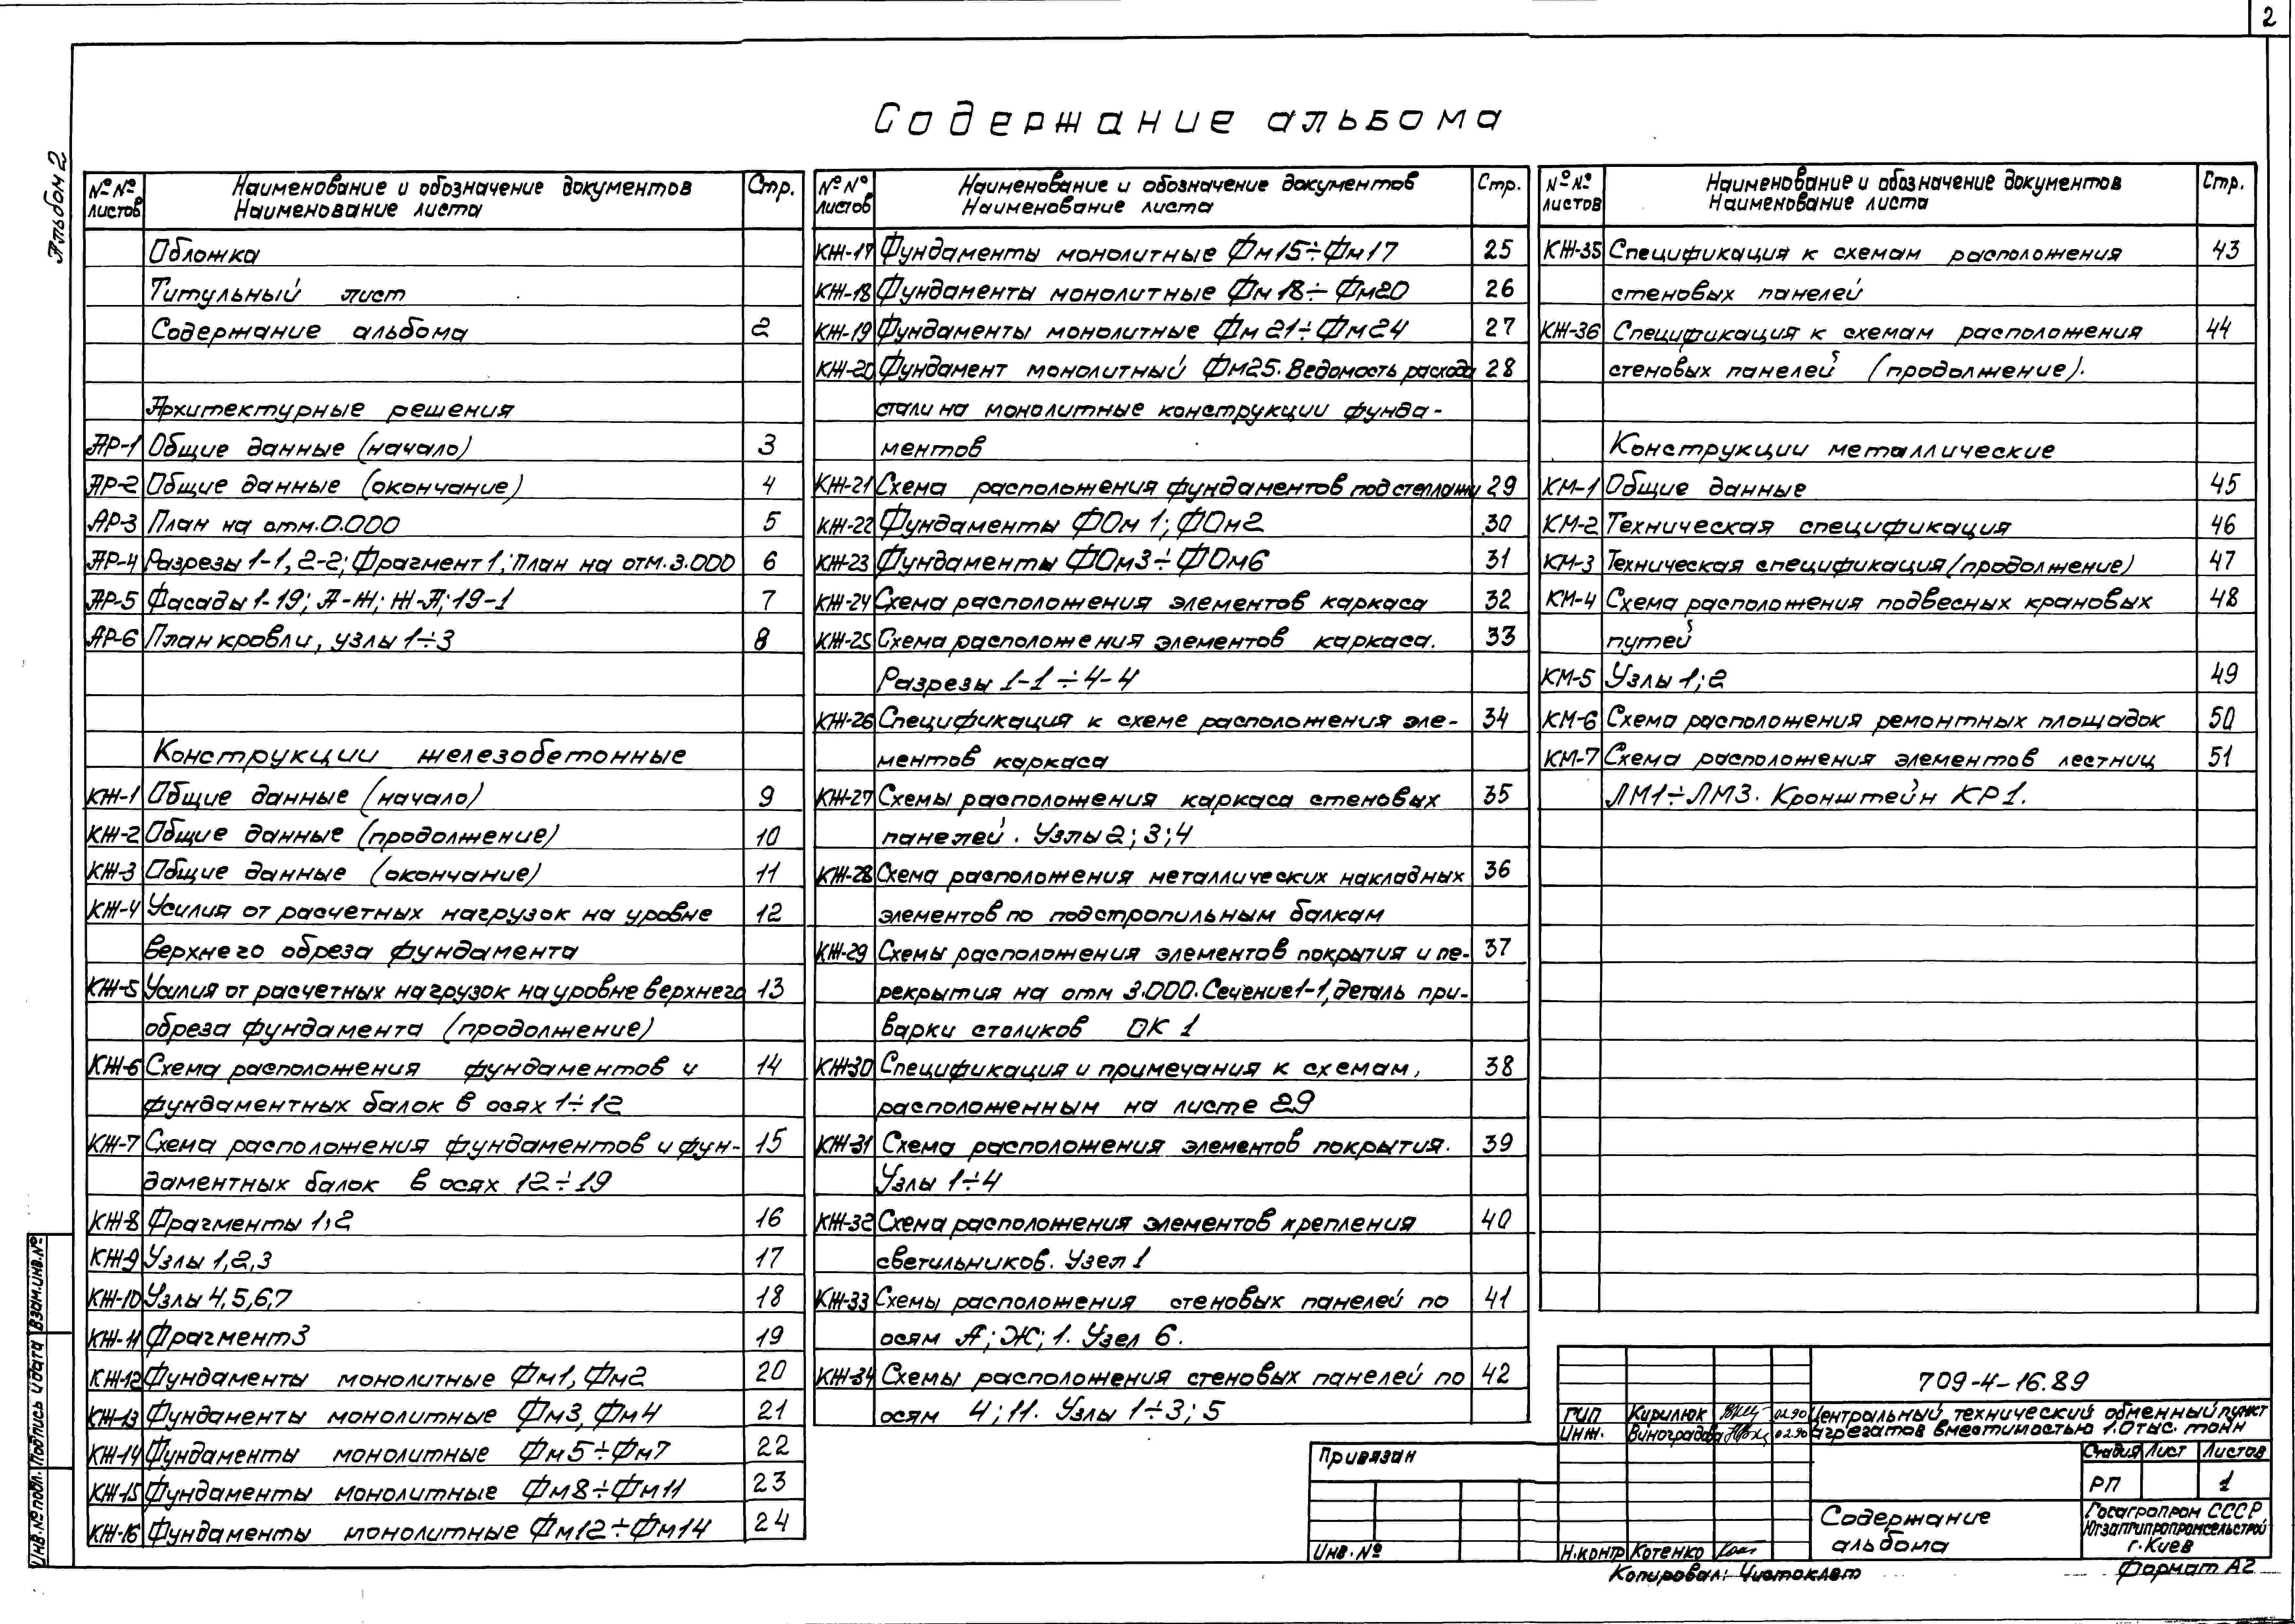 2
Альбом 2
Содержание альбома
№№ листов Наименование и обозначение документов Наименование листа Стр.
Обложка
Титульный лист
Содержание альбома 2
Архитектурные решения
АР-1 Общие данные (начало) 3
АР-2 Общие данные (окончание) 4
АР-3 План на отм. 0.000 5
АР-4 Разрезы 1-1, 2-2; Фрагмент 1; План на отм. 3.000 6
АР-5 Фасады 1-19; А-Ж; Ж-А; 19-1 7
АР-6 План кровли, узлы 1÷3 8
Конструкции железобетонные
КЖ-1 Общие данные (начало) 9
КЖ-2 Общие данные (продолжение) 10
КЖ-3 Общие данные (окончание) 11
КЖ-4 Усилия от расчетных нагрузок на уровне 12
верхнего обреза фундамента
КЖ-5 Усилия от расчетных нагрузок на уровне верхнего 13
обреза фундамента (продолжение)
КЖ-6 Схема расположения фундаментов и 14
фундаментных балок в осях 1÷12
КЖ-7 Схема расположения фундаментов и фун- 15
даментных балок в осях 12÷19
КЖ-8 Фрагменты 1,2 16
КЖ-9 Узлы 1,2,3 17
КЖ-10 Узлы 4,5,6,7 18
КЖ-11 Фрагмент 3 19
КЖ-12 Фундаменты монолитные Фм1, Фм2 20
КЖ-13 Фундаменты монолитные Фм3, Фм4 21
КЖ-14 Фундаменты монолитные Фм5÷Фм7 22
КЖ-15 Фундаменты монолитные Фм8÷Фм11 23
КЖ-16 Фундаменты монолитные Фм12÷Фм14 24
№№ листов Наименование и обозначение документов Наименование листа Стр.
КЖ-17 Фундаменты монолитные Фм15÷Фм17 25
КЖ-18 Фундаменты монолитные Фм18÷Фм20 26
КЖ-19 Фундаменты монолитные Фм21÷Фм24 27
КЖ-20 Фундамент монолитный Фм25. Ведомость расхода 28
стали на монолитные конструкции фунда-
ментов
КЖ-21 Схема расположения фундаментов под стеллажи 29
КЖ-22 Фундаменты ФОм1; ФОм2 30
КЖ-23 Фундаменты ФОм3÷ФОм6 31
КЖ-24 Схема расположения элементов каркаса 32
КЖ-25 Схема расположения элементов каркаса. 33
Разрезы 1-1÷4-4
КЖ-26 Спецификация к схеме расположения эле- 34
ментов каркаса
КЖ-27 Схемы расположения каркаса стеновых 35
панелей. Узлы 2; 3; 4
КЖ-28 Схема расположения металлических накладных 36
элементов по подстропильным балкам
КЖ-29 Схемы расположения элементов покрытия и пе- 37
рекрытия на отм 3.000. Сечение 1-1, деталь при-
варки столиков ОК 1
КЖ-30 Спецификация и примечания к схемам, 38
расположенным на листе 29
КЖ-31 Схема расположения элементов покрытия. 39
Узлы 1÷4
КЖ-32 Схема расположения элементов крепления 40
светильников. Узел 1
КЖ-33 Схемы расположения стеновых панелей по 41
осям А; Ж; 1. Узел 6.
КЖ-34 Схемы расположения стеновых панелей по 42
осям 4; 11. Узлы 1÷3; 5
№№ листов Наименование и обозначение документов Наименование листа Стр.
КЖ-35 Спецификация к схемам расположения 43
стеновых панелей
КЖ-36 Спецификация к схемам расположения 44
стеновых панелей (продолжение).
Конструкции металлические
КМ-1 Общие данные 45
КМ-2 Техническая спецификация 46
КМ-3 Техническая спецификация (продолжение) 47
КМ-4 Схема расположения подвесных крановых 48
путей
КМ-5 Узлы 1; 2 49
КМ-6 Схема расположения ремонтных площадок 50
КМ-7 Схема расположения элементов лестниц 51
ЛМ1÷ЛМ3. Кронштейн КР1.
709-4-16.89
ГИП Кирилюк 02.90 Центральный технический обменный пункт
Инж. Виноградова 02.90 агрегатов вместимостью 1.0 тыс. тонн
Привязан
Стадия Лист Листов
РП 1
Содержание альбома
Госагропром СССР
Югзапгипропромсельстрой
г. Киев
Инв. №
Н.контр Котенко
Копировал: Чистоклет
Формат А2
Инв. № подл. Подпись и дата Взам. инв. №